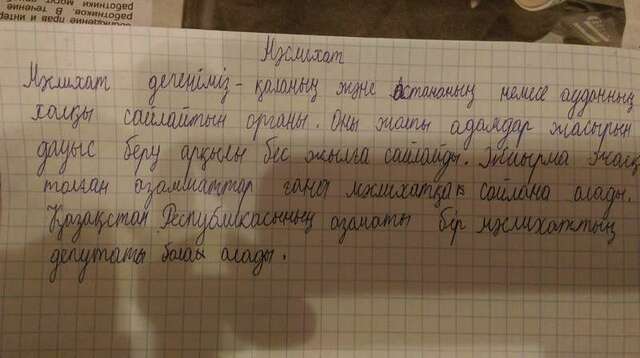 Мәслихат
Мәслихат дегеніміз - қаланың және астананың немесе ауданның
халқы сайлайтын органы. Оны жалпы адамдар жасырын
дауыс беру арқылы бес жылға сайлайды. Жиырма жасқ
толған азаматтар ғана мәслихатқа сайлана алады.
Қазақстан Республикасының азаматы бір мәслихаттың
депутаты бола алады.